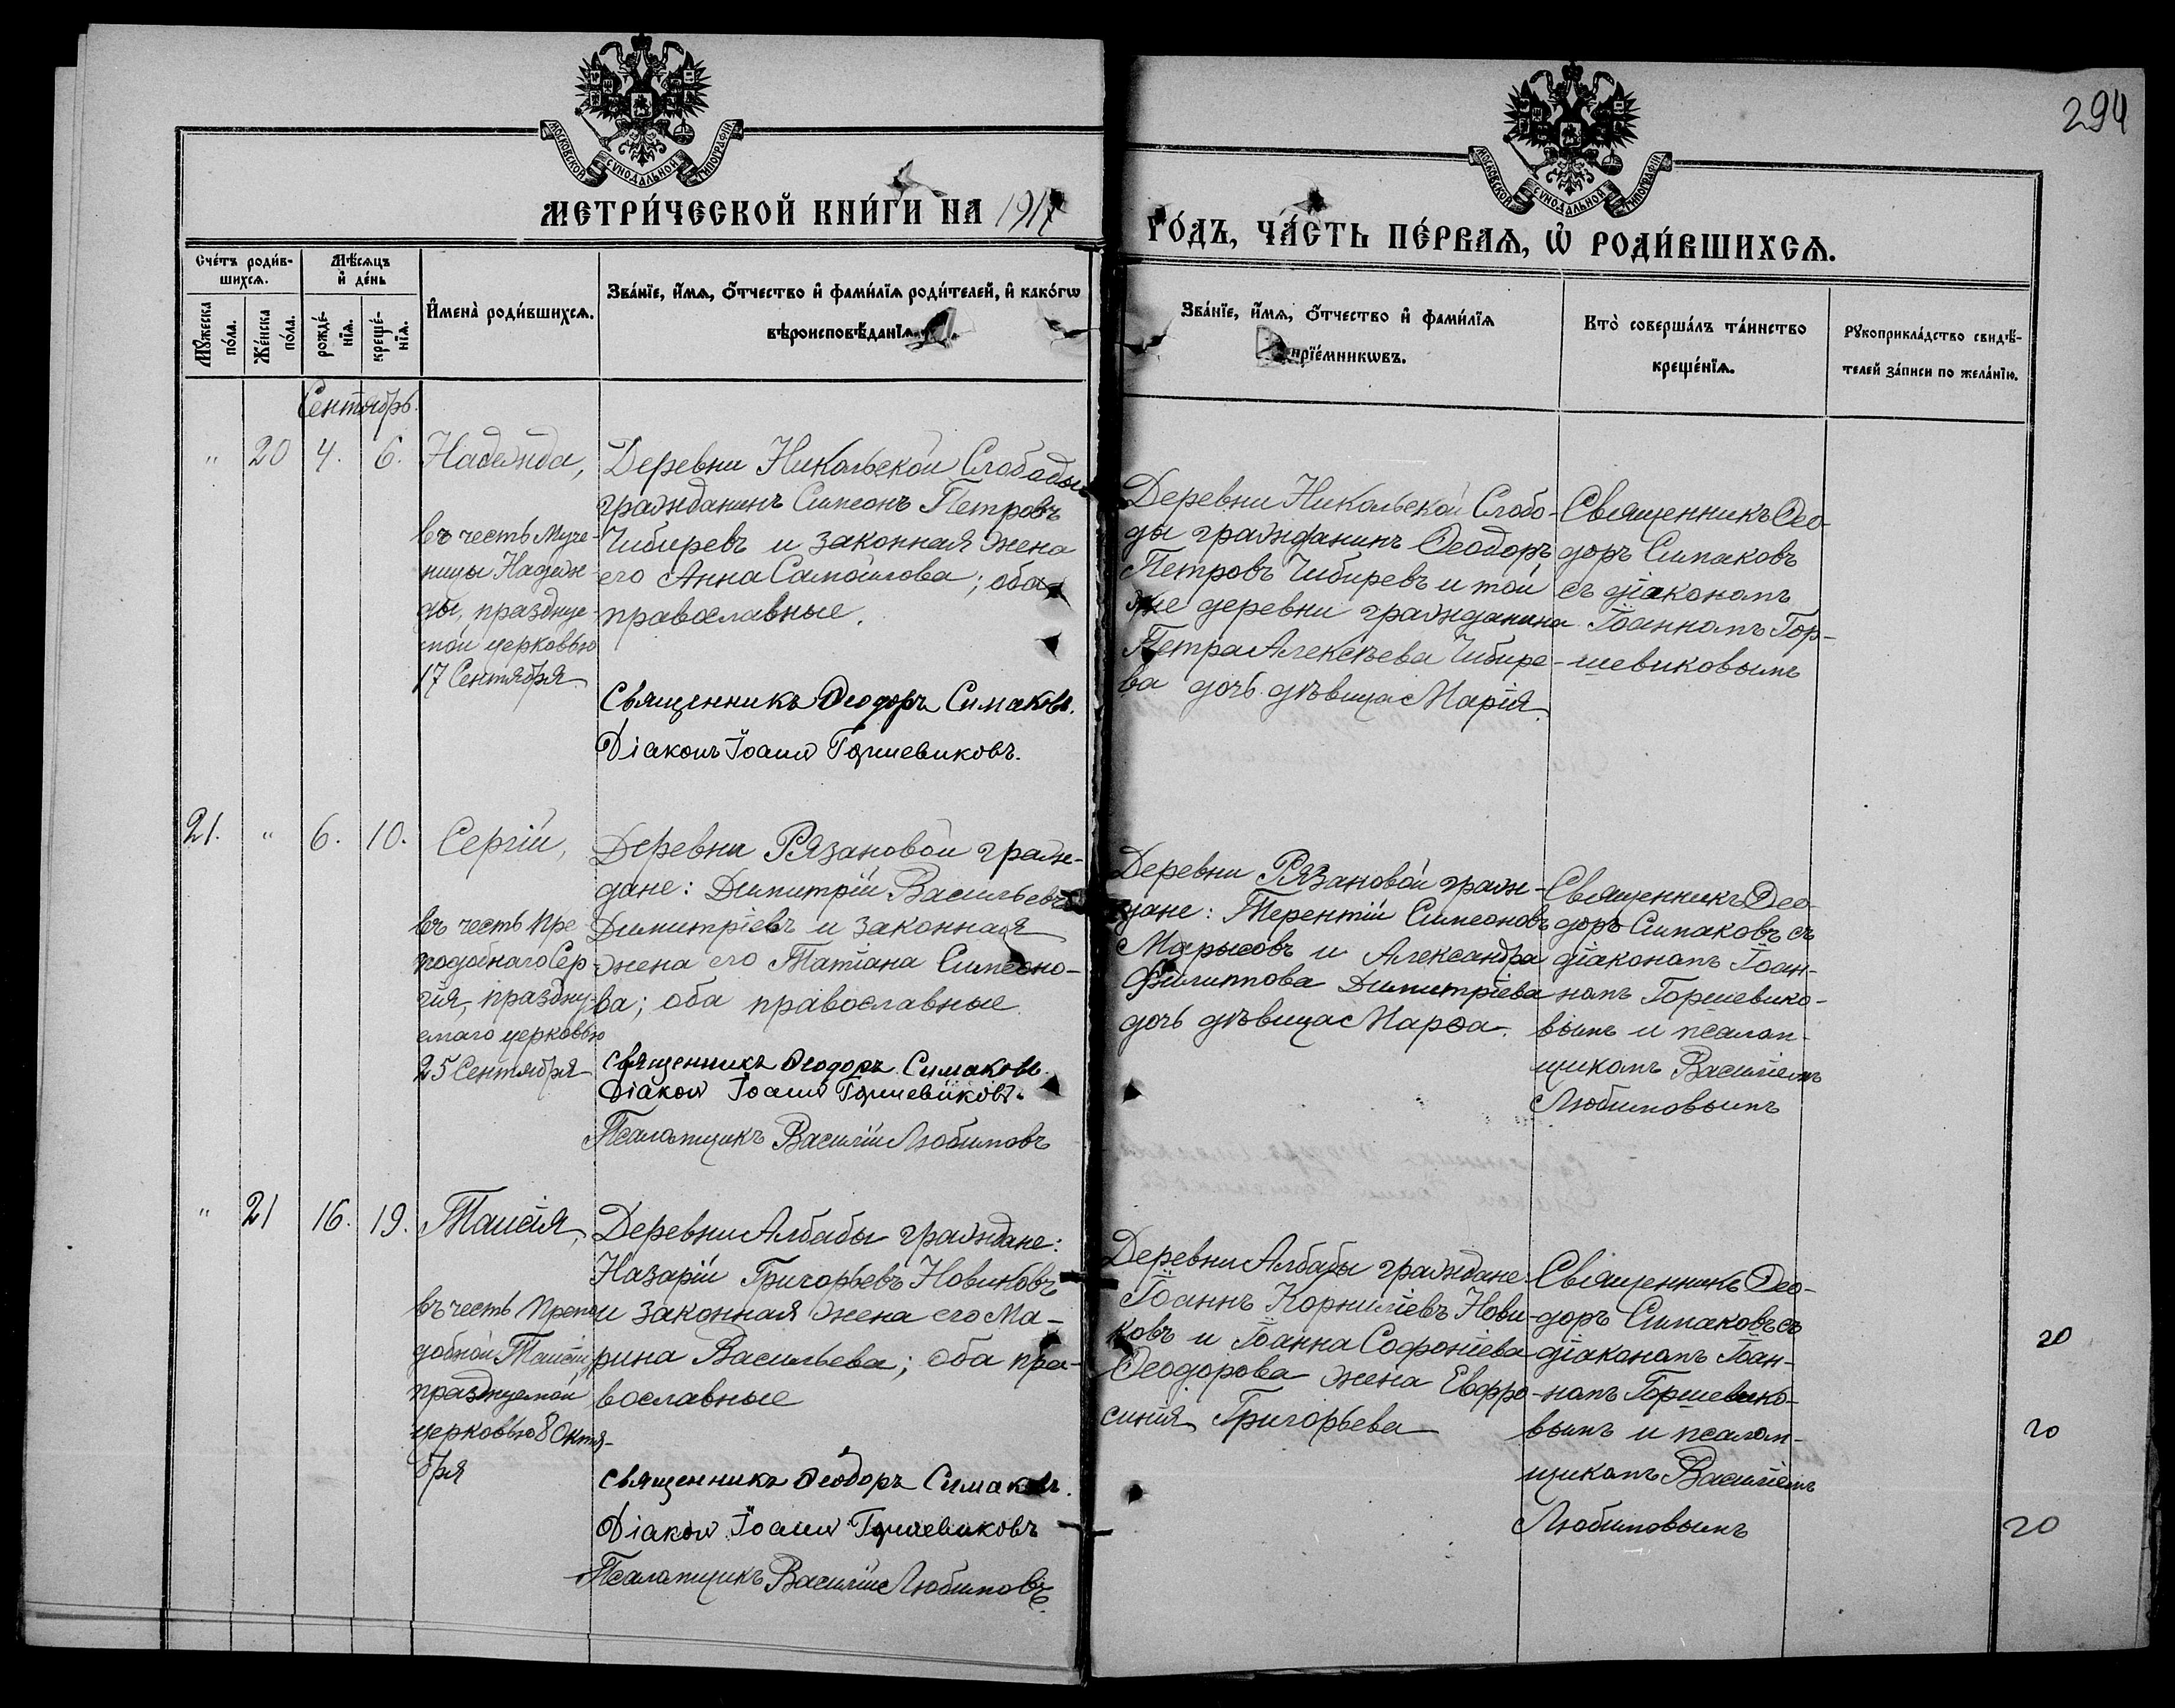 294
МОСКОВСКОЙ СѴНОДАЛЬНОЙ ТИПОГРАФІИ
МЕТРИ́ЧЕСКОЙ КНИ́ГИ НА 1917
МОСКОВСКОЙ СѴНОДАЛЬНОЙ ТИПОГРАФІИ
ГО́ДЪ, ЧА́СТЬ ПЕ́РВАѦ, Ѡ҆ РОДИ́ВШИХСѦ.
Сче́тъ роди́в-
шихсѧ.
Мѣ́сѧцъ
и҆ де́нь
Мꙋ́жеска
по́ла.
Же́нска
по́ла.
рожде́-
нїѧ.
креще́-
нїѧ.
И҆мена̀ роди́вшихсѧ.
Зва́нїе, и҆́мѧ, ѻ҆́тчество и҆ фами́лїѧ роди́телей, и҆ како́гѡ
вѣроисповѣ́данїѧ.
Зва́нїе, и҆́мѧ, ѻ҆́тчество и҆ фами́лїѧ
прїе́мникѡвъ.
Кто̀ соверша́лъ та́инство
креще́нїѧ.
Рꙋкоприкла́дство свидѣ́-
телей за́писи по жела́нїю.
Сентябрь.
" 20 4. 6. Надежда,
въ честь муче-
ницы Надеж-
ды, празднуе-
мой церковью
17 Сентября
Деревни Никольской Слободы
гражданинъ Симеонъ Петровъ
Чибиревъ и законная жена
его Анна Самойлова; оба
православные.
Священникъ Ѳеодоръ Симаковъ.
Діаконъ Іоаннъ Горшевиковъ.
Деревни Никольской Слобо-
ды гражданинъ Ѳеодоръ
Петровъ Чибиревъ и той
же деревни гражданина
Петра Алексѣева Чибире-
ва дочь дѣвица Марія.
Священникъ Ѳео-
доръ Симаковъ
съ діакономъ
Іоанномъ Гор-
шевиковымъ
21. " 6. 10. Сергій,
въ честь Пре
подобнаго Сер-
гія, праздну-
емаго церковью
25 Сентября
Деревни Рязановой граж-
дане: Димитрій Васильевъ
Димитріевъ и законная
жена его Татіана Симеоно-
ва; оба православные.
Священникъ Ѳеодоръ Симаковъ.
Діаконъ Іоаннъ Горшевиковъ.
Псаломщикъ Василій Любимовъ
Деревни Рязановой граж-
дане: Терентій Симеоновъ
Марысовъ и Александра
Филиппова Димитріева
дочь дѣвица Марѳа.
Священникъ Ѳео-
доръ Симаковъ съ
діакономъ Іоан-
номъ Горшевико-
вымъ и псалом-
щикомъ Василіемъ
Любимовымъ
" 21 16. 19. Таисія,
въ честь Препо
добной Таисіи,
празднуемой
церковью 8 Октя-
бря
Деревни Албабы граждане:
Назарій Григорьевъ Новиковъ
и законная жена его Ма-
рина Васильева; оба пра-
вославные
Священникъ Ѳеодоръ Симаковъ.
Діаконъ Іоаннъ Горшевиковъ
Псаломщикъ Василій Любимовъ.
Деревни Албабы граждане:
Іоаннъ Корниліевъ Нови-
ковъ и Іоанна Софоніева
Ѳеодорова жена Евфро-
синія Григорьева
Священникъ Ѳео-
доръ Симаковъ съ
діакономъ Іоан-
номъ Горшевико-
вымъ и псалом-
щикомъ Василіемъ
Любимовымъ
20
20
20